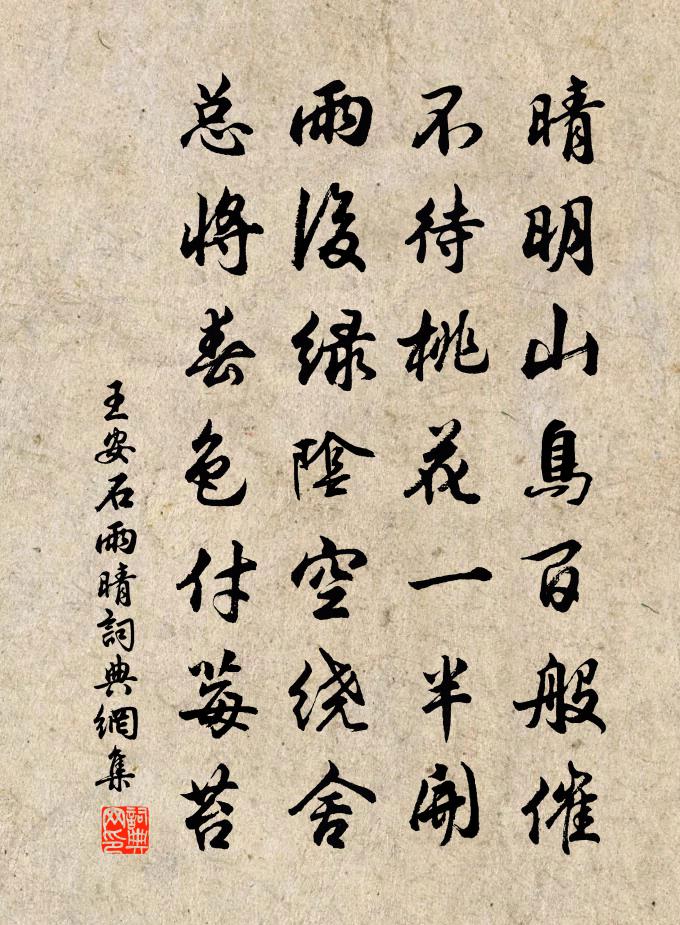 晴明山鳥百般催
不待桃花一半開
雨後緑陰空繞舍
总將春色付莓苔
王安石雨晴詞典網集
詞典網印